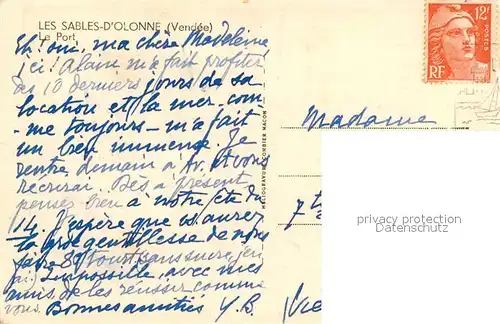 LES SABLES-D'OLONNE (Vendée)
Le Port
Eh! oui, ma chère Madeleine,
ici! Alain m'a fait profiter
des 10 derniers jours de sa
location et la mer - com-
- me toujours - m'a fait
un bien immense. Je
rentre demain à Av. et vous
récrirai. Dès à présent
pensez bien à notre fête du
14. J'espère que vs aurez
la gde gentillesse de nous
faire 8 tourt sans sucre, j'en
ai impossible, avec mes
amis de les réussir comme
vous. Bonnes amitiés Y.B.
HELIOGRAVURE COMBIER MACON
Madame
7
12F
POSTES
RF
privacy protection
Datenschutz